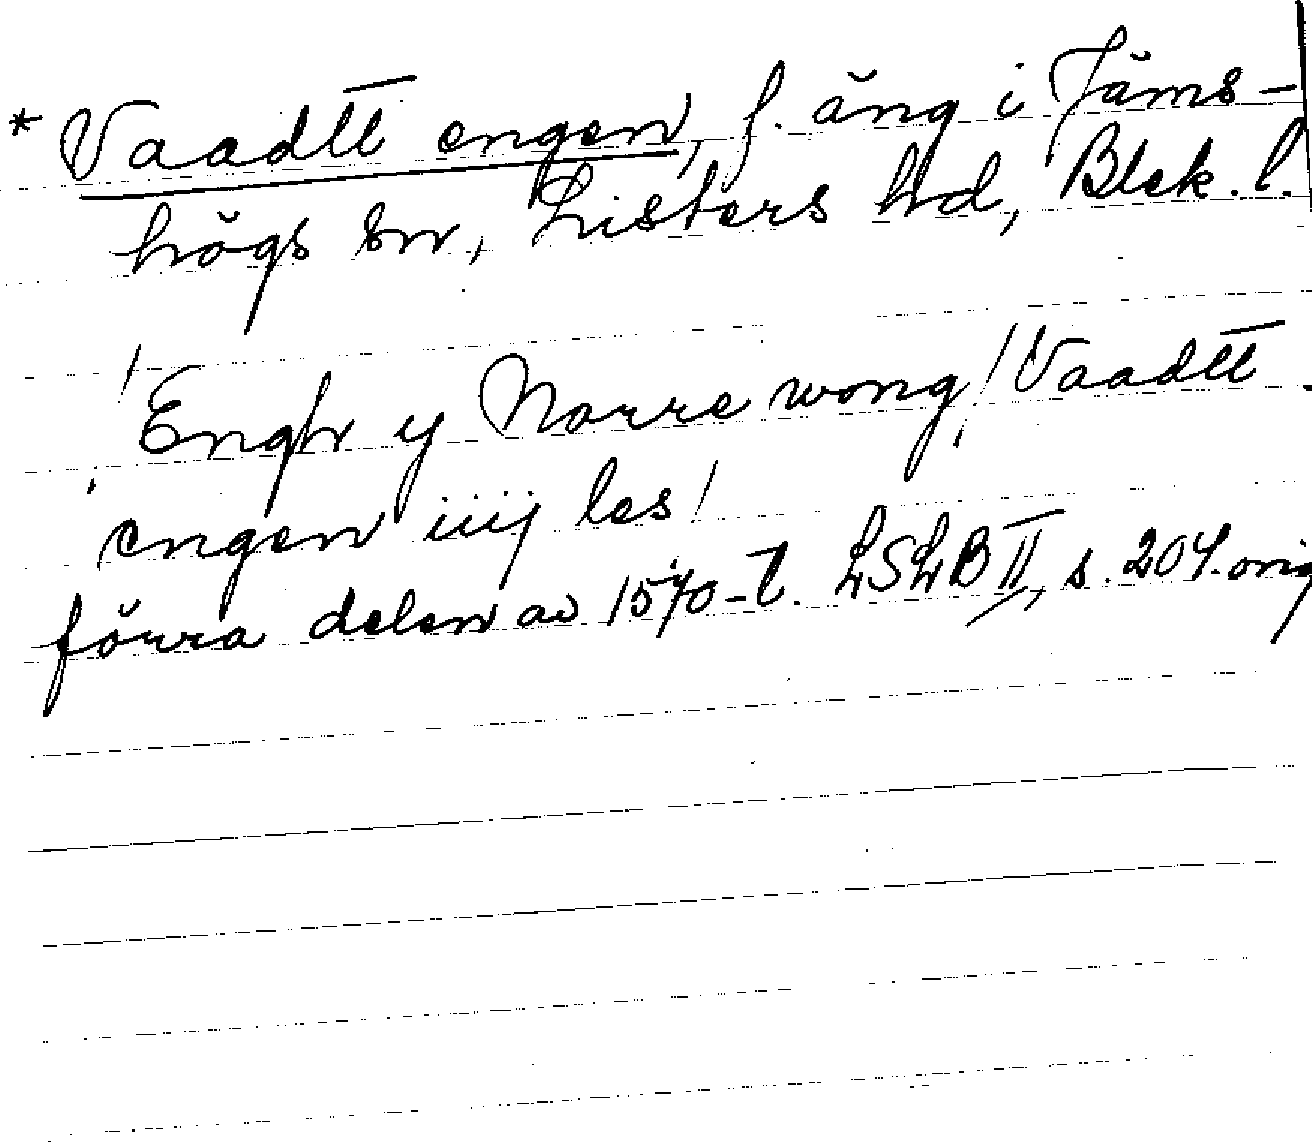 * Vaadtt engen, f. äng i Jäms-
högs sn, Listers hd, Blek. l.
! Engh y Norre wong! ! Vaadtt
engen iiij les!
förra delen av 1570-t. LSLB II, s. 204. orig